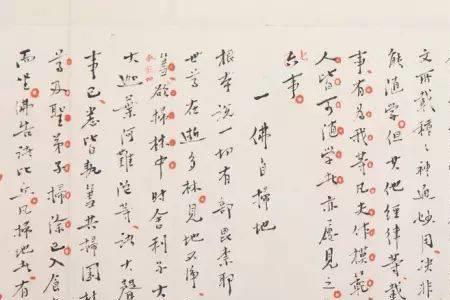 文所載種々神通妙用決非
能随学但其他經律等載
事有為我等凡夫作模範
人皆可随学者亦屢見之
七
六事
一 佛自掃地
根本說一切有部毘奈耶
世尊在逝多林見地不淨
箒欲掃林中時舍利子大
大迦葉阿難陀等諸大聲
事已悉皆執箒共掃園林
尊及聖弟子掃除已入食
而坐佛告諸比丘凡掃地者有